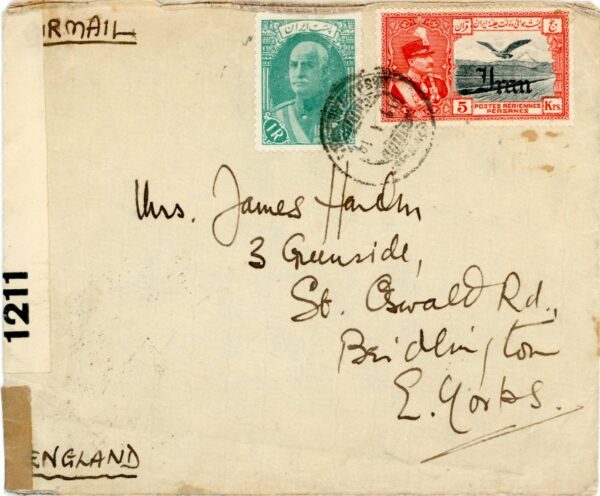 IRMAIL
پست ایران
1R
5
Krs.
POSTES AÉRIENNES
PERSANES
Iran
Mrs. James Hardm
3 Greenside,
St. Oswald Rd.,
Bridlington
E. Yorks.
1211
ENGLAND